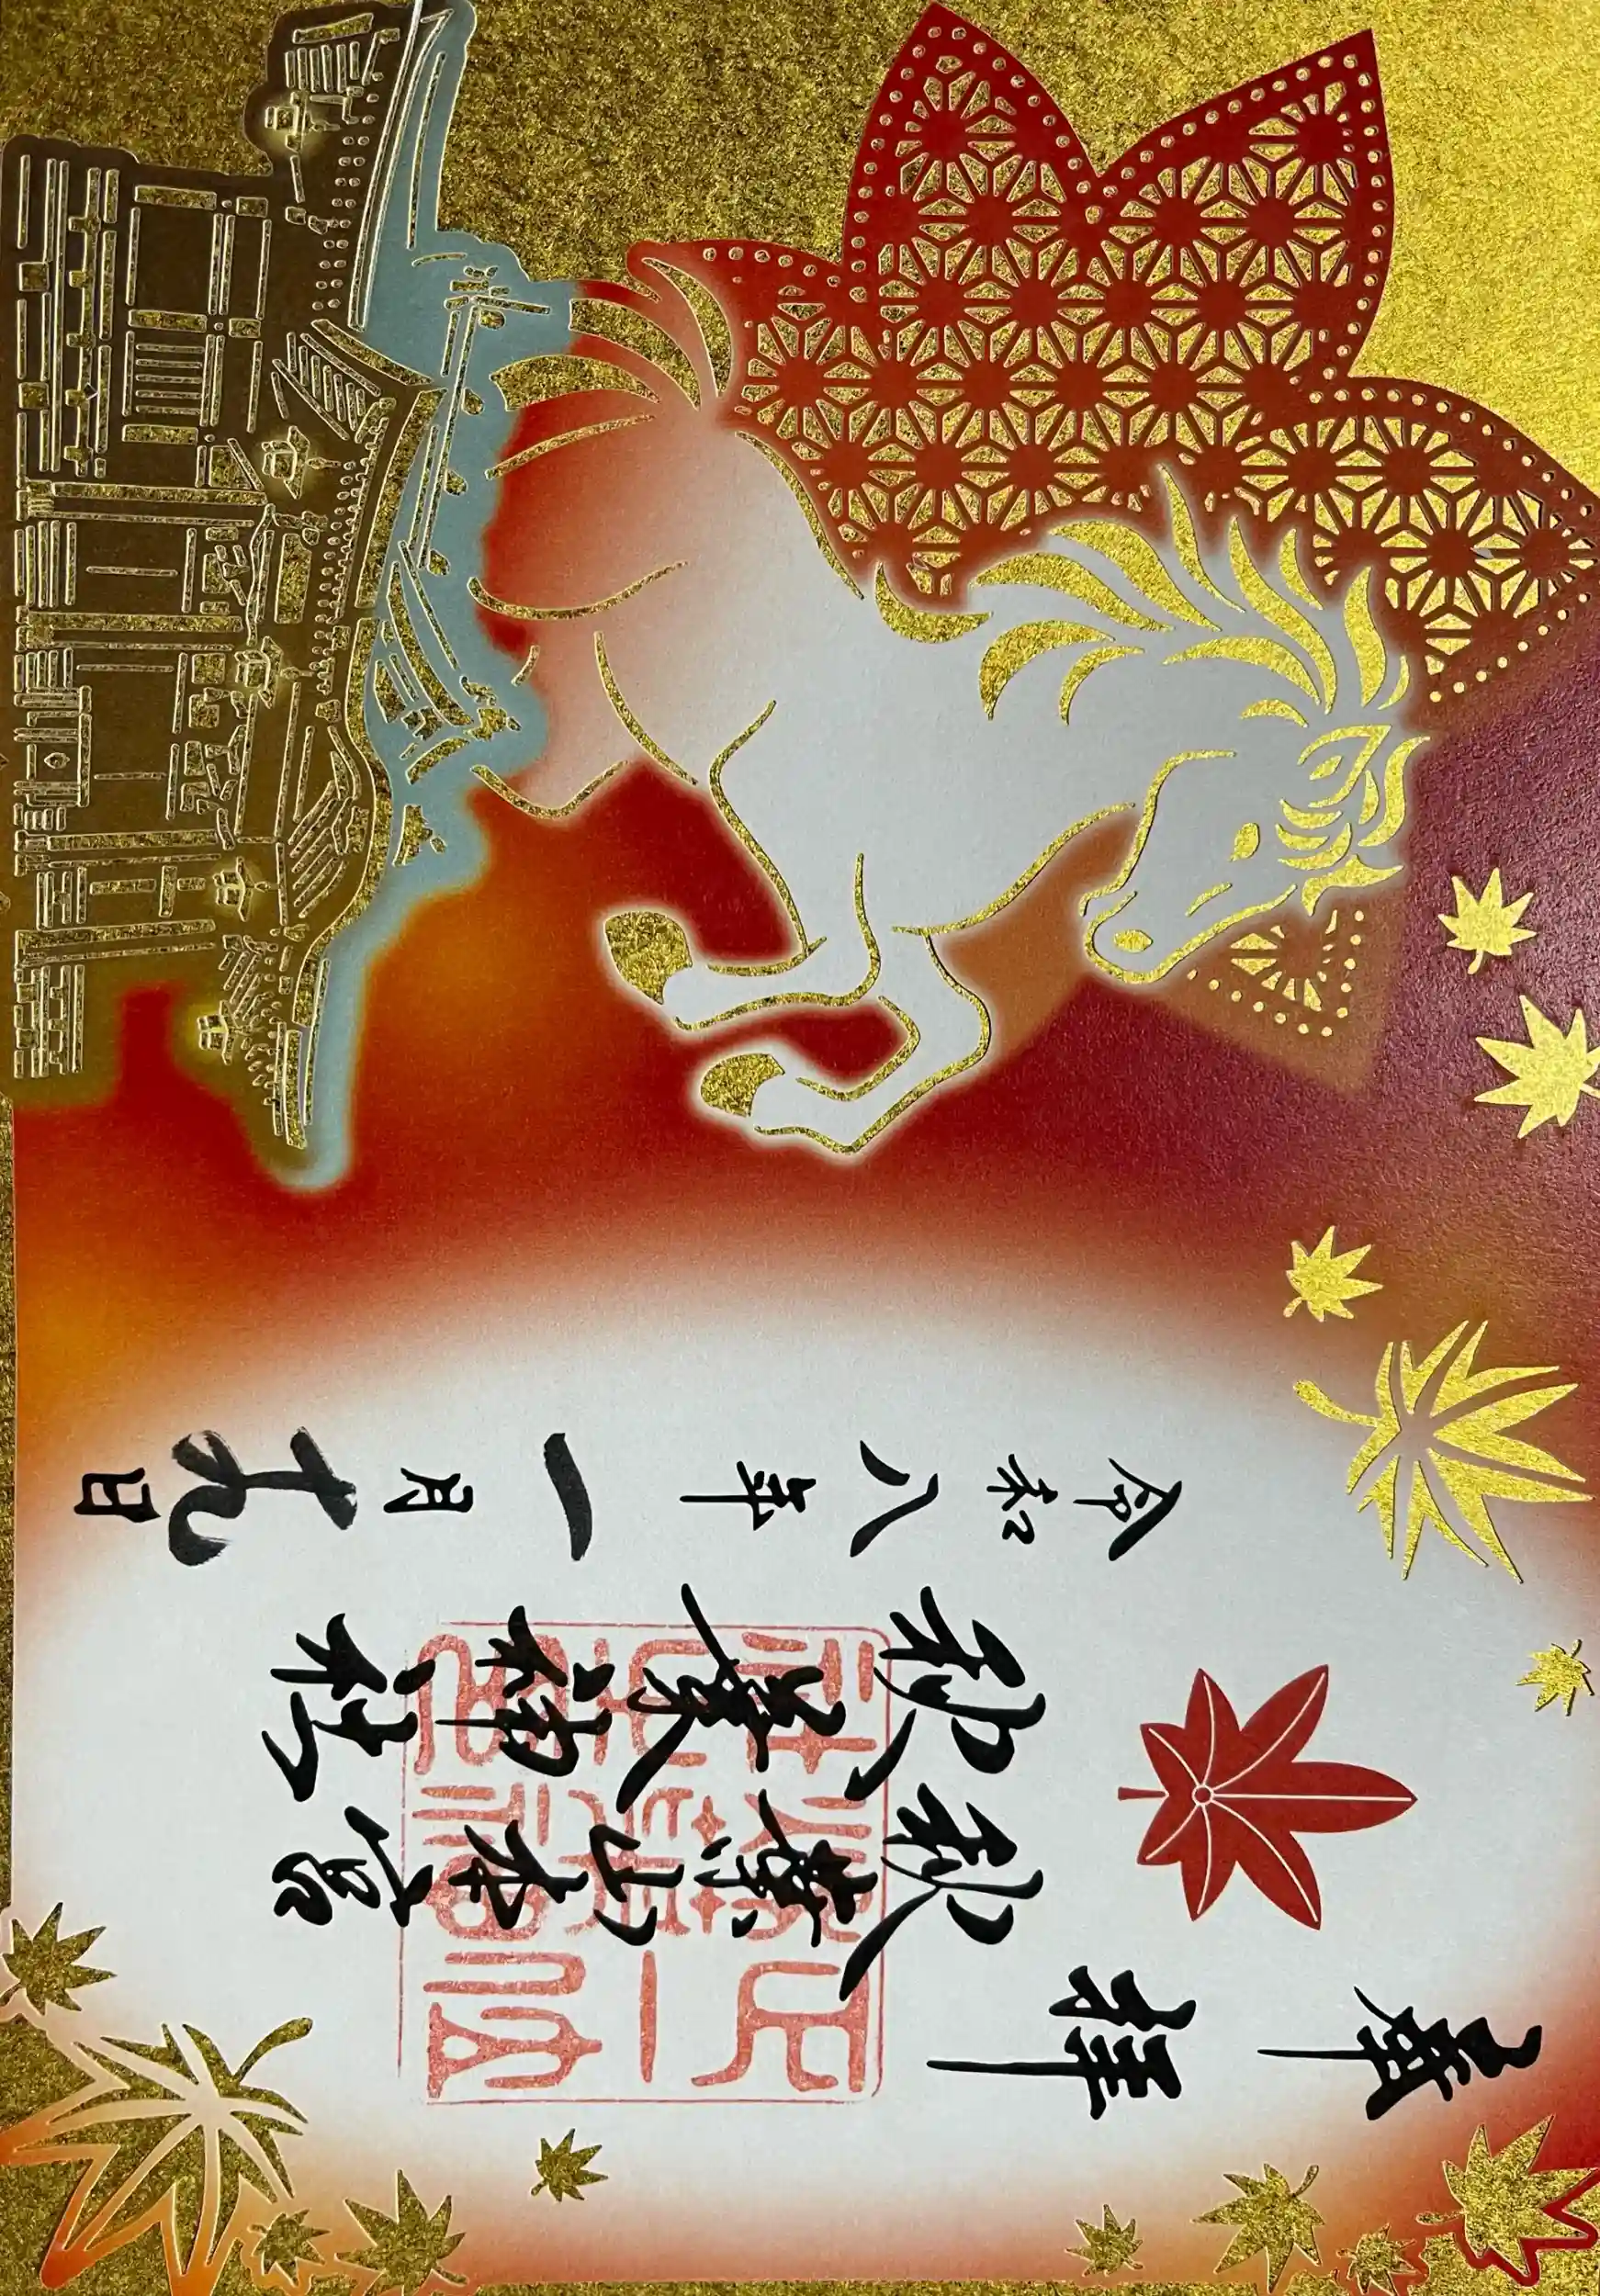 奉拝
秋葉山本宮
秋葉神社
令和八年一月十九日